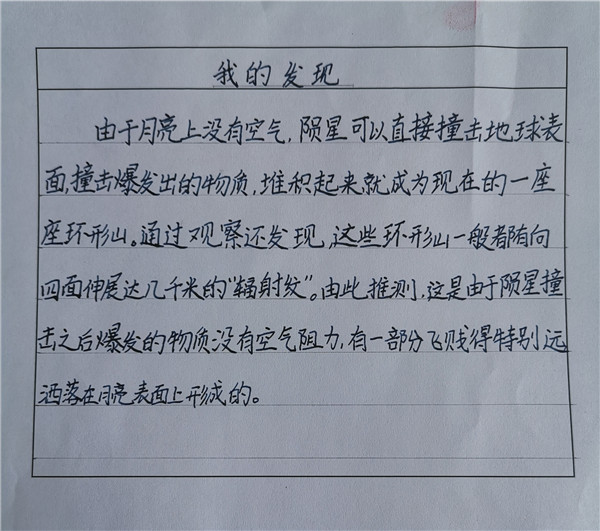 我的发现
由于月亮上没有空气,陨星可以直接撞击地球表
面,撞击爆发出的物质,堆积起来就成为现在的一座
座环形山。通过观察还发现,这些环形山一般都有向
四面伸展达几千米的“辐射纹”。由此推测,这是由于陨星撞
击之后爆发的物质没有空气阻力,有一部分飞贱得特别远
洒落在月亮表面上形成的。